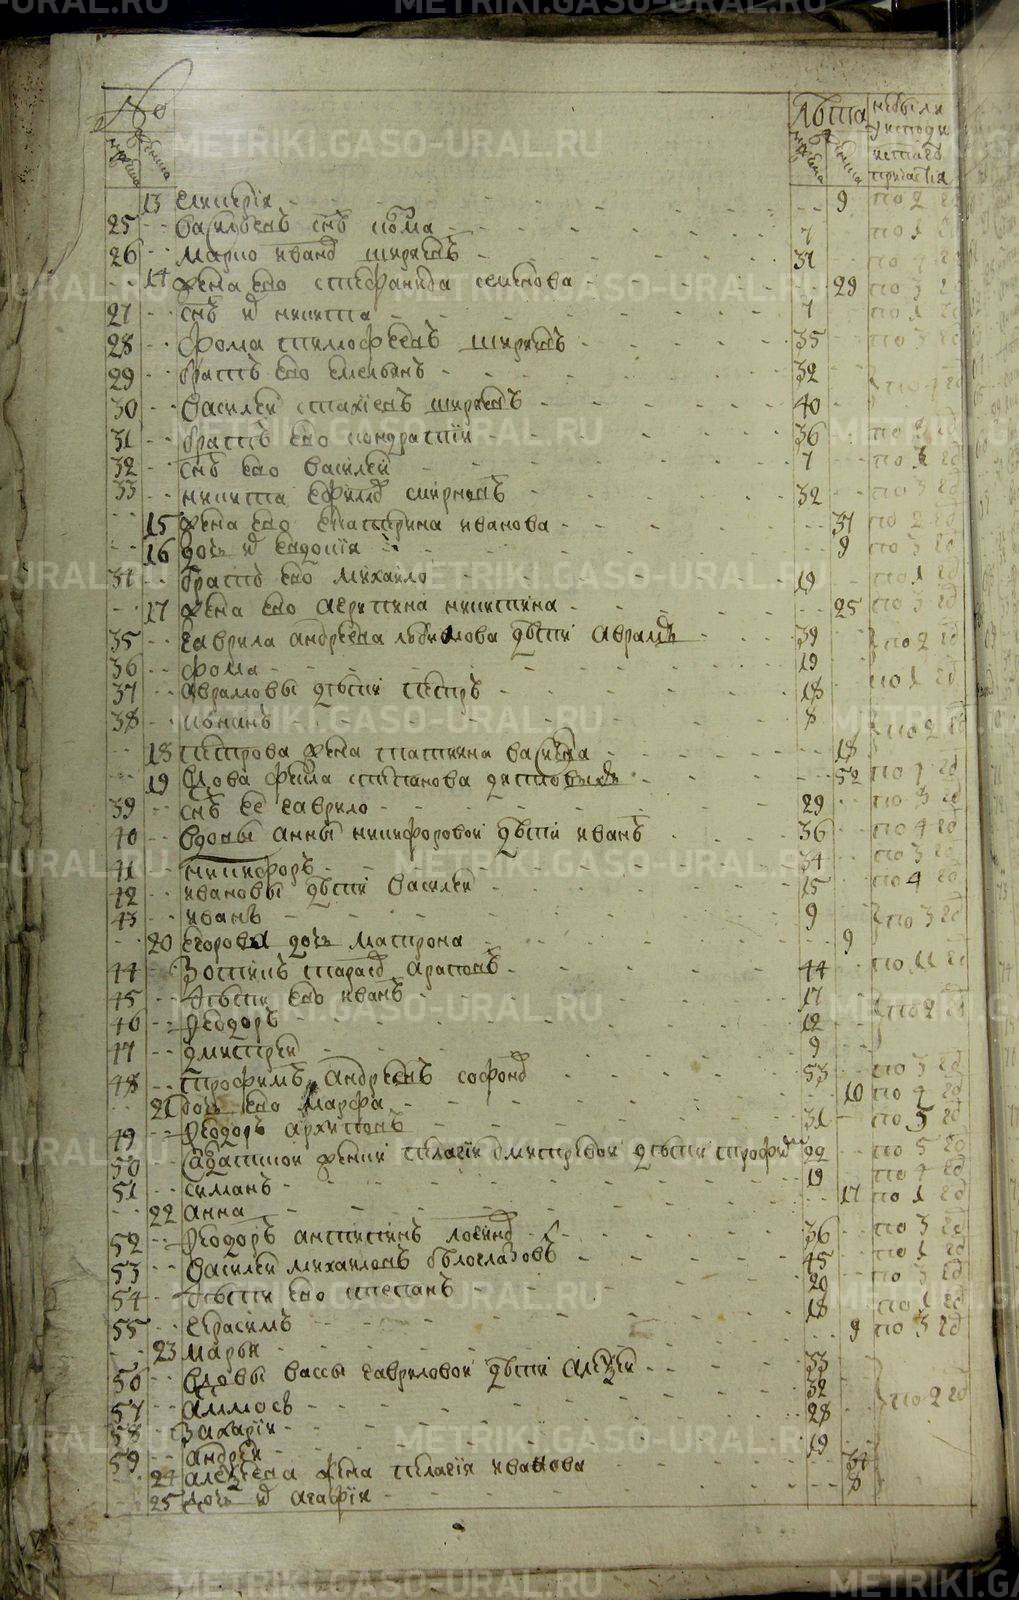 № Лѣта небыли
мужеска женска мужеска женска у исповѣди
и св. таинъ
причастія
13 Гликерія 9 по 2 го
25 Василевъ снъ Кома 7 по 1 го
26 Марко иванов Ширяевъ 31
14 жена его Стефанида семенова 29 по 3 го
27 снъ их Никита 7 по 1 го
28 Фома тимофеевъ Ширяевъ 35 по 3 го
29 братъ его емельянъ 32 по 4 го
30 Василей стахѣевъ ширяевъ 40
31 братъ его кондратий 36 по 2 го
32 снъ его Василей 7 по 1 го
33 никита ефимов смирновъ 32 по 3 го
15 жена его екатерина иванова 31 по 2 го
16 дочь их евдокія 9 по 3 го
34 братъ его михайло 19 по 1 го
17 жена его агрипина никитина 25 по 3 го
35 гаврила андреева любимова дѣти аврамъ 39 по 2 го
36 фома 19
37 аврамовы дѣти петръ 18 по 1 го
38 иоаннъ 8 по 2 го
18 петрова жена татиана васильева 18
19 вдова фекла степанова 52 по 1 го
39 снъ ее гаврило 29 по 3 го
40 вдовы анны никифоровой дѣти иванъ 36 по 4 го
41 никифоръ 34 по 3 го
42 ивановы дѣти василей 15 по 4 го
43 иванъ 9 по 3 го
20 егорова дочь матрона 9
44 Зотикъ тарасов араповъ 44 по 11 го
45 дѣти его иванъ 17 по 2 го
46 феодоръ 12
47 дмитрей 9
48 трофимъ андреевъ софонов 53 по 3 го
21 дочь его марфа 10 по 4 го
49 феодоръ архиповъ 31 по 5 го
50 салдатской жены пелагіи дмитревой дѣти трофим 22 по 5 го
51 симанъ 19 по 4 го
22 анна 17 по 1 го
52 феодоръ антипинъ логинов 36 по 3 го
53 василей михайловъ бѣлоглазовъ 45 по 1 го
54 дѣти его степанъ 20 по 3 го
55 герасимъ 18 по 1 го
23 марья 9 по 3 го
56 вдовы вассы гавриловой дѣти алеѯѣй 33
57 аммосъ 32 по 2 го
58 захарій 28
59 андрей 19
24 алеѯѣева жена пелагія иванова 31
25 дочь их агафія 8
METRIKI.GASO-URAL.RU